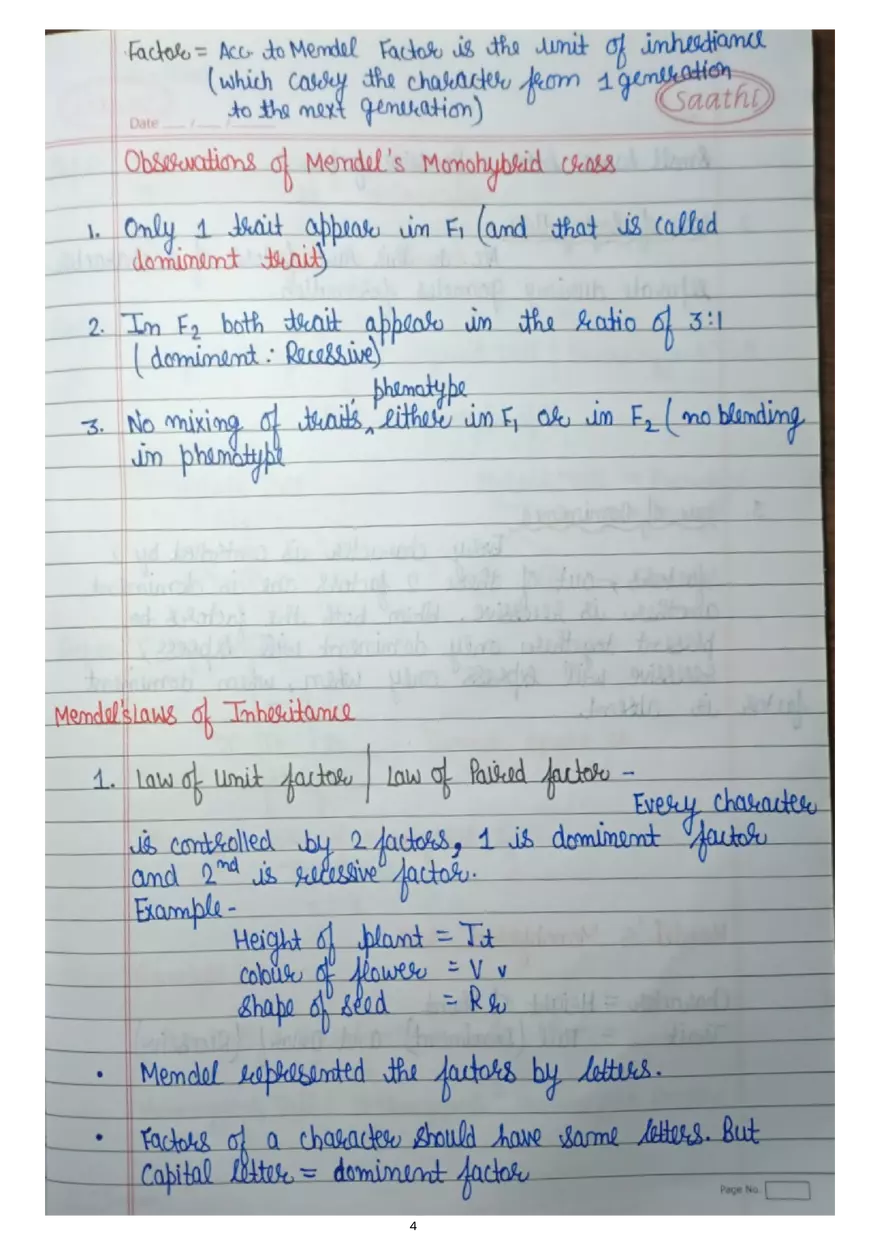 Factor = Acc to Mendel Factor is the unit of inherdiance
(which carry the character from 1 generation
to the next generation)
Saathi
Date __/__/__
Observations of Mendel's Monohybrid cross
1. Only 1 trait appear in F1 (and that is called
dominent trait)
2. In F2 both trait appear in the ratio of 3:1
(dominent : Recessive)
phenotype
3. No mixing of traits, either in F1 or in F2 (no blending
in phenotype
Mendel's Laws of Inheritance
1. Law of Unit factor / Law of Paired factor -
Every character
is controlled by 2 factors, 1 is dominent factor
and 2nd is recessive factor.
Example -
Height of plant = T.t
colour of flower = V v
shape of seed = R r
• Mendel represented the factors by letters.
• Factors of a character should have same letters. But
Capital letter = dominent factor
Page No.
4